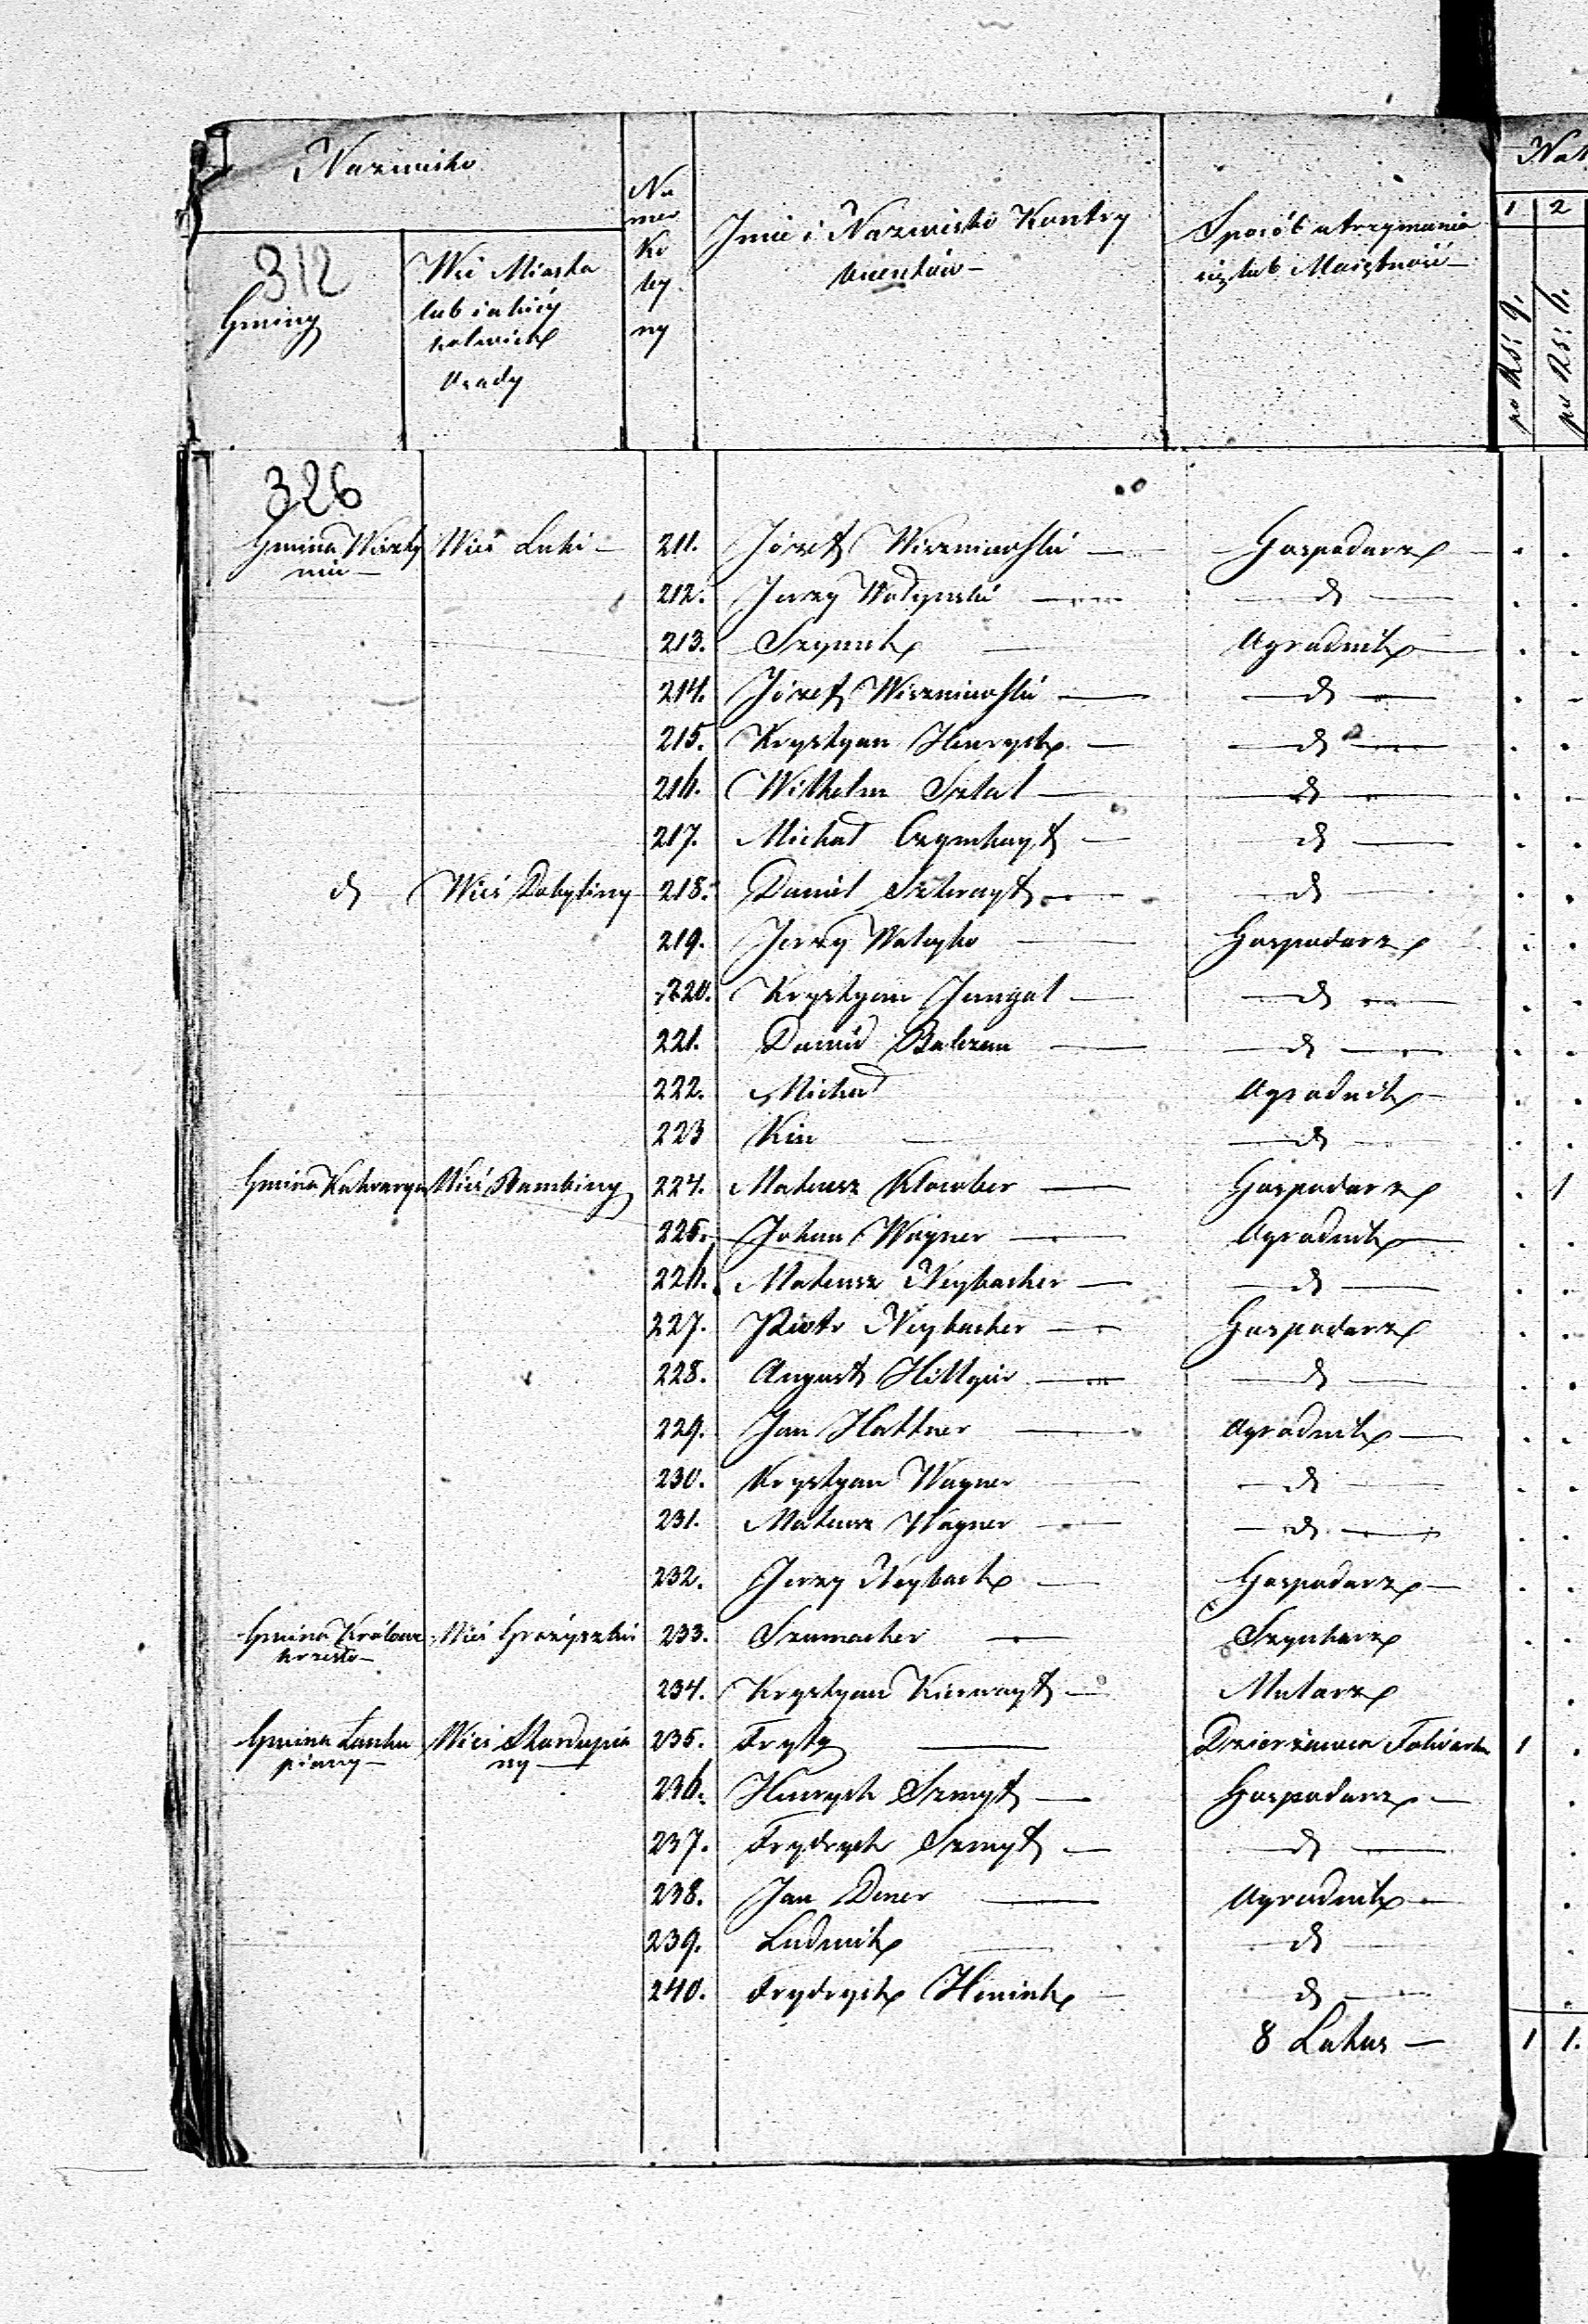 Nazwisko
Nu
mer
Ko
ley
ny
Imie i Nazwisko Kontry
buentów —
Sposób utrzymania
się lub Maiętność —
1 2
312
Gminy
Wsi Miasta
lub iakiéy
kolwiek
Osady
po Rsr 9.
po Rsr 6.
326
Gmina Wiszty
niec — Wieś Luki — 211. Józef Wiszniewski — Gospodarz — . .
212. Jerzy Wołynski — d — . .
213. Szymek — Ogrodnik — . .
214. Józef Wiszniewski — d — . .
215. Krystyan Henryk — d — . .
216. Wilhelm Sztal — d — . .
217. Michał — d — . .
d Wieś 218. Daniel — d — . .
219. Jerzy — Gospodarz . .
220. Krystyan — d — . .
221. — d — . .
222. Michał Ogrodnik — . .
223 Kin — d — . .
Gmina Kalwarya Wieś 224. Mateusz Klauber — Gospodarz . 1
225. Johan Wagner — Ogrodnik — . .
226. Mateusz Neybacher — d — . .
227. Piotr Neybacher — Gospodarz . .
228. August — d — . .
229. Jan Hattner — Ogrodnik — . .
230. Krystyan Wagner — d — . .
231. Mateusz Wagner — d — . .
232. Jerzy Neybach — Gospodarz — . .
Gmina Królowe
krzesło — Wieś 233. Szumacher — Szynkarz . .
234. Krystyan — .
Gmina Wieś
ny — 235. Fryty — Dzierżawca Folwarku 1 .
236. Henrych Szmyt — Gospodarz — .
237. Frydrych Szmyt — d — .
238. Jan Dener — Ogrodnik — .
239. Ludwik — d — .
240. Frydrych — d — .
8 Latus — 1 1.